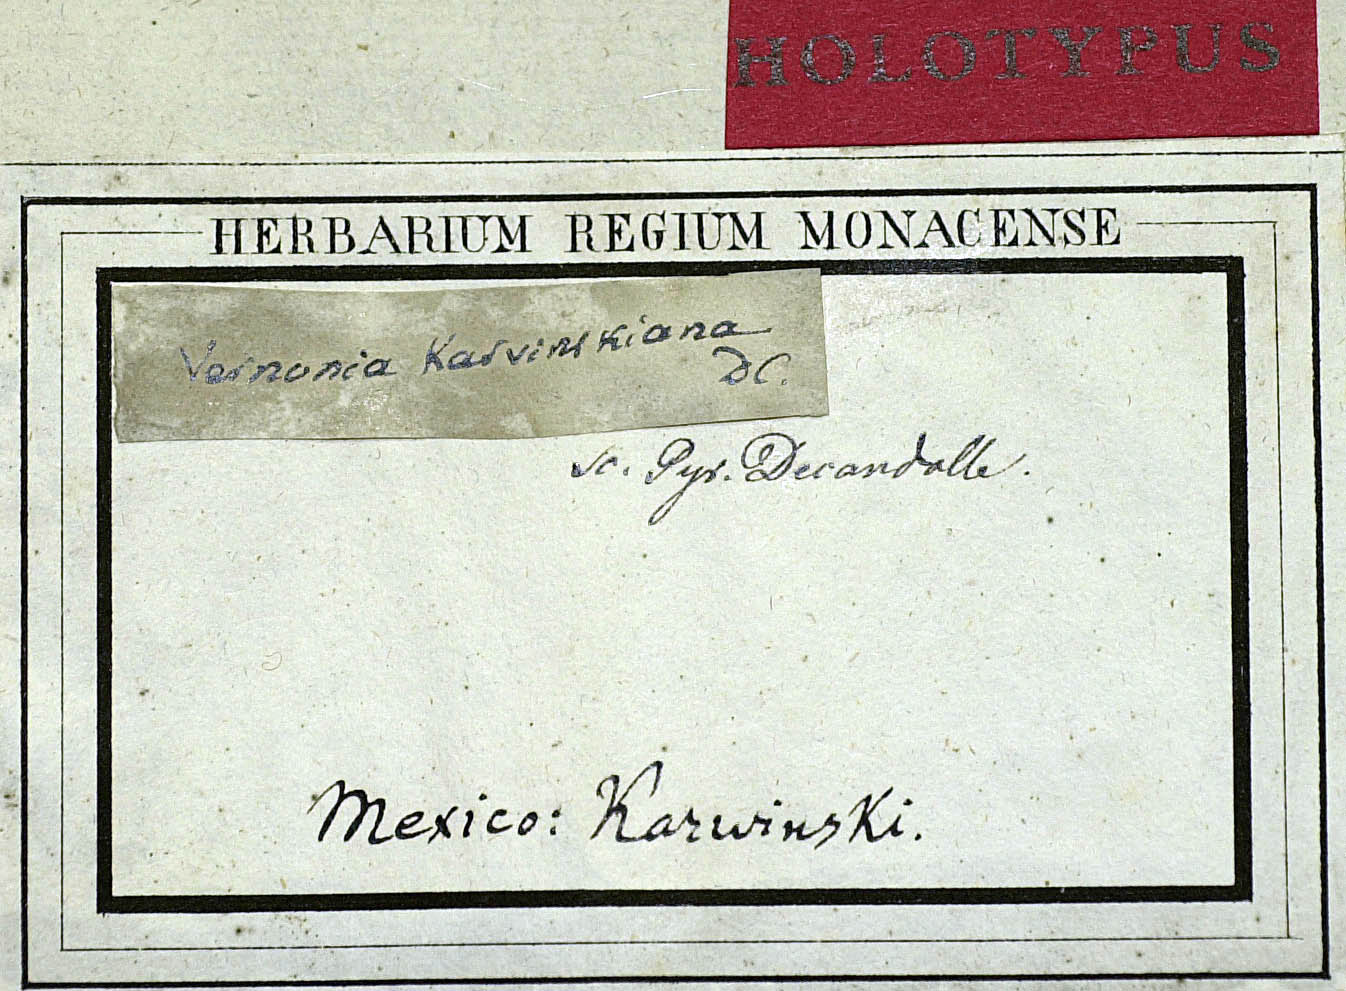 HOLOTYPUS
HERBARIUM REGIUM MONACENSE
Vernonia Karvinskiana
DC.
sc. Pyr. Decandolle.
Mexico: Karwinski.